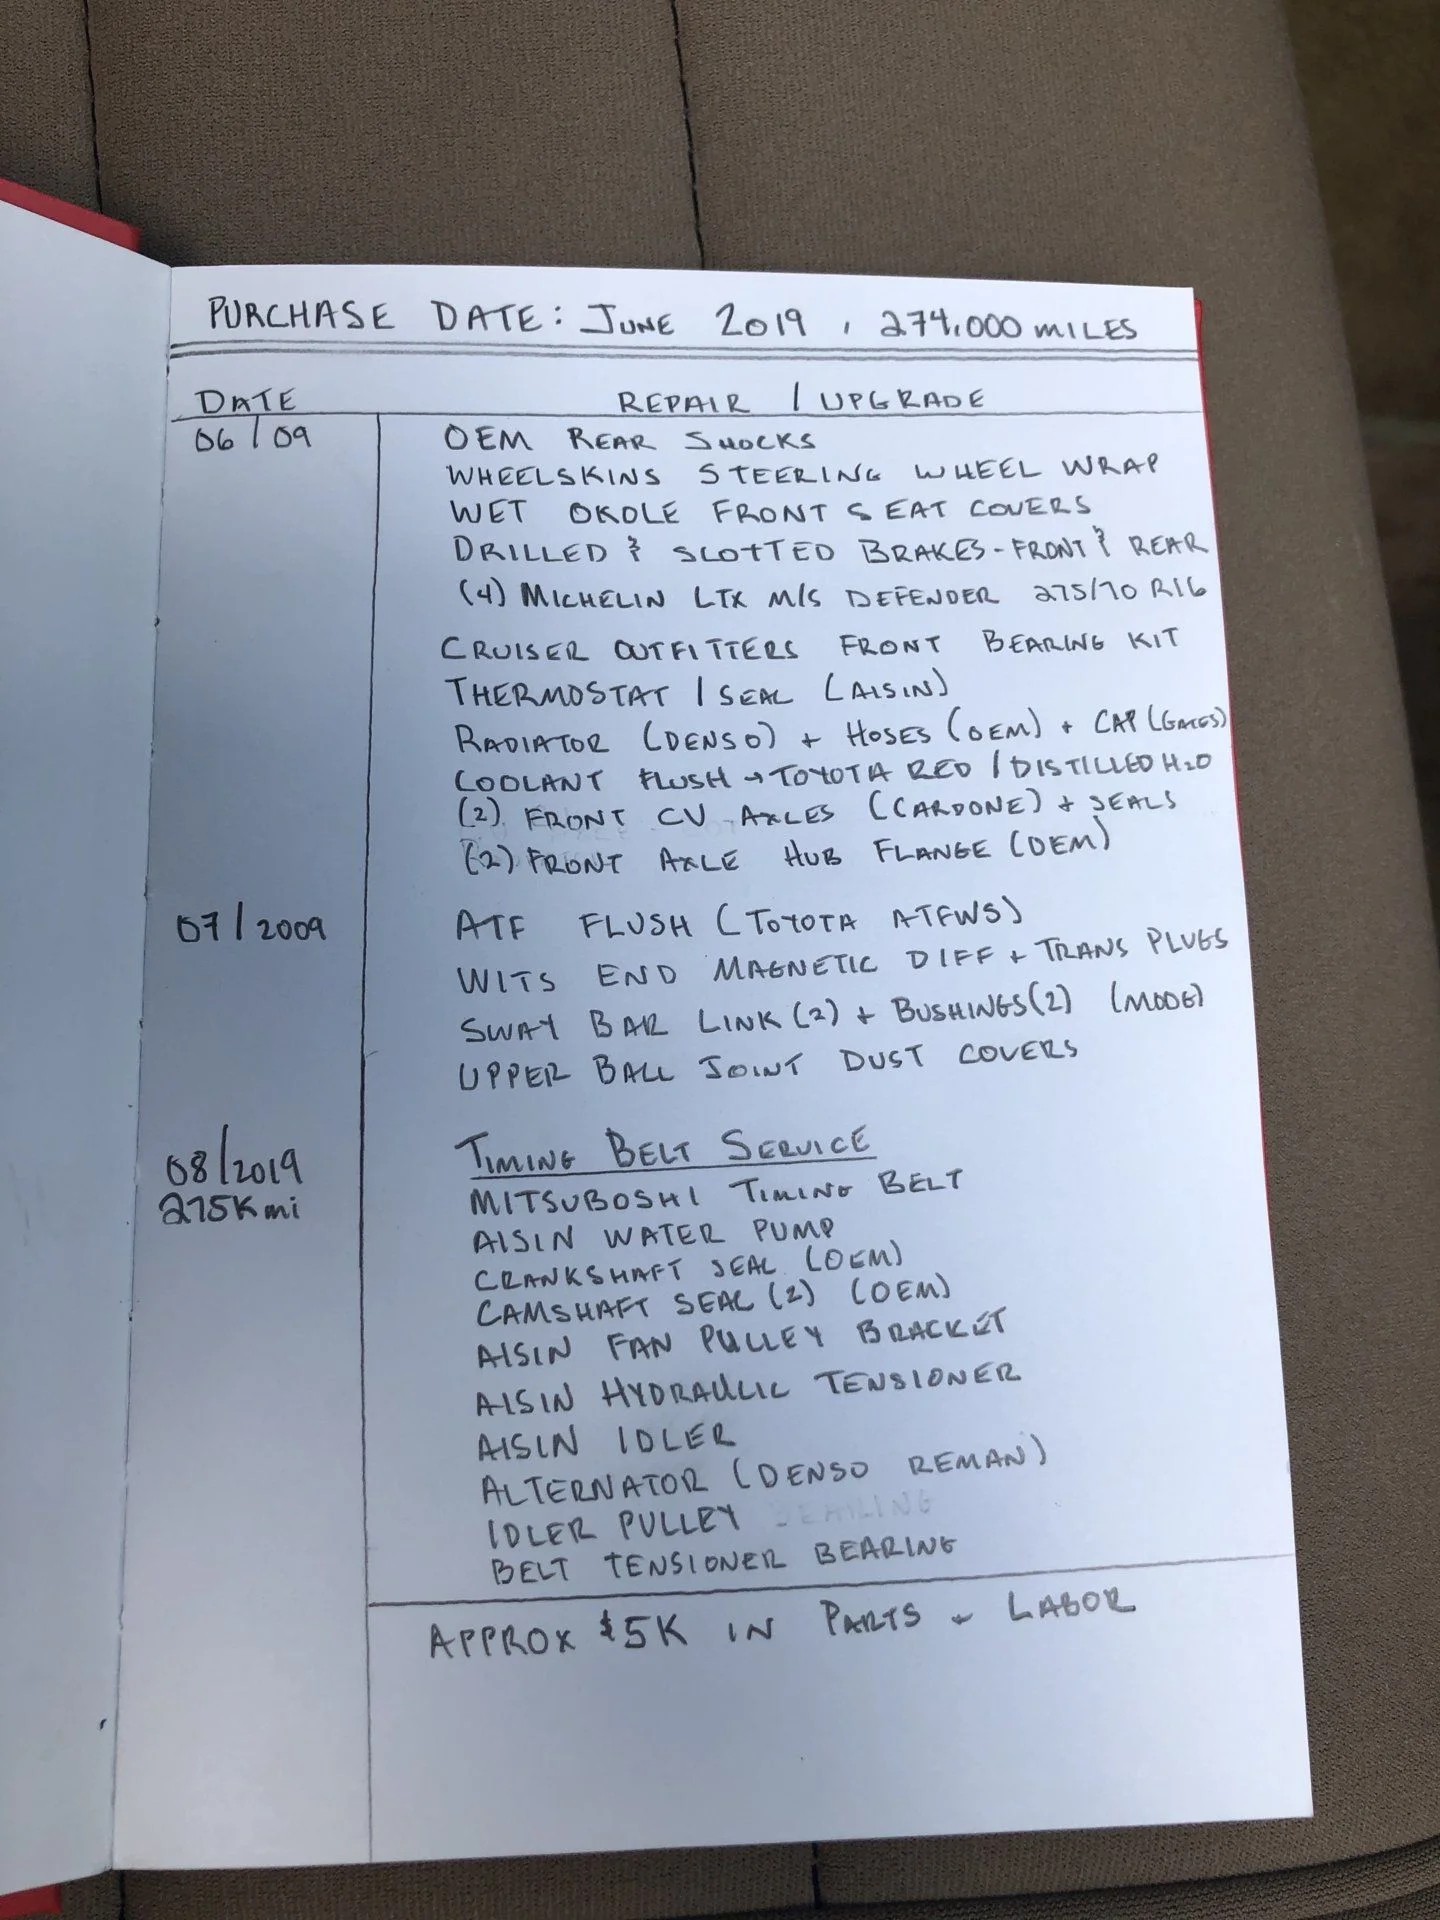 PURCHASE DATE: JUNE 2019, 274,000 MILES
DATE REPAIR / UPGRADE
06/09 OEM REAR SHOCKS
WHEELSKINS STEERING WHEEL WRAP
WET OKOLE FRONT SEAT COVERS
DRILLED & SLOTTED BRAKES - FRONT & REAR
(4) MICHELIN LTX M/S DEFENDER 275/70 R16
CRUISER OUTFITTERS FRONT BEARING KIT
THERMOSTAT / SEAL (AISIN)
RADIATOR (DENSO) + HOSES (OEM) + CAP (GATES)
COOLANT FLUSH → TOYOTA RED / DISTILLED H2O
(2) FRONT CV AXLES (CARDONE) + SEALS
(2) FRONT AXLE HUB FLANGE (OEM)
07/2009 ATF FLUSH (TOYOTA ATFWS)
WITS END MAGNETIC DIFF + TRANS PLUGS
SWAY BAR LINK (2) + BUSHINGS (2) (MOOG)
UPPER BALL JOINT DUST COVERS
08/2019 TIMING BELT SERVICE
275K mi MITSUBOSHI TIMING BELT
AISIN WATER PUMP
CRANKSHAFT SEAL (OEM)
CAMSHAFT SEAL (2) (OEM)
AISIN FAN PULLEY BRACKET
AISIN HYDRAULIC TENSIONER
AISIN IDLER
ALTERNATOR (DENSO REMAN)
IDLER PULLEY BEARING
BELT TENSIONER BEARING
APPROX $5K IN PARTS + LABOR